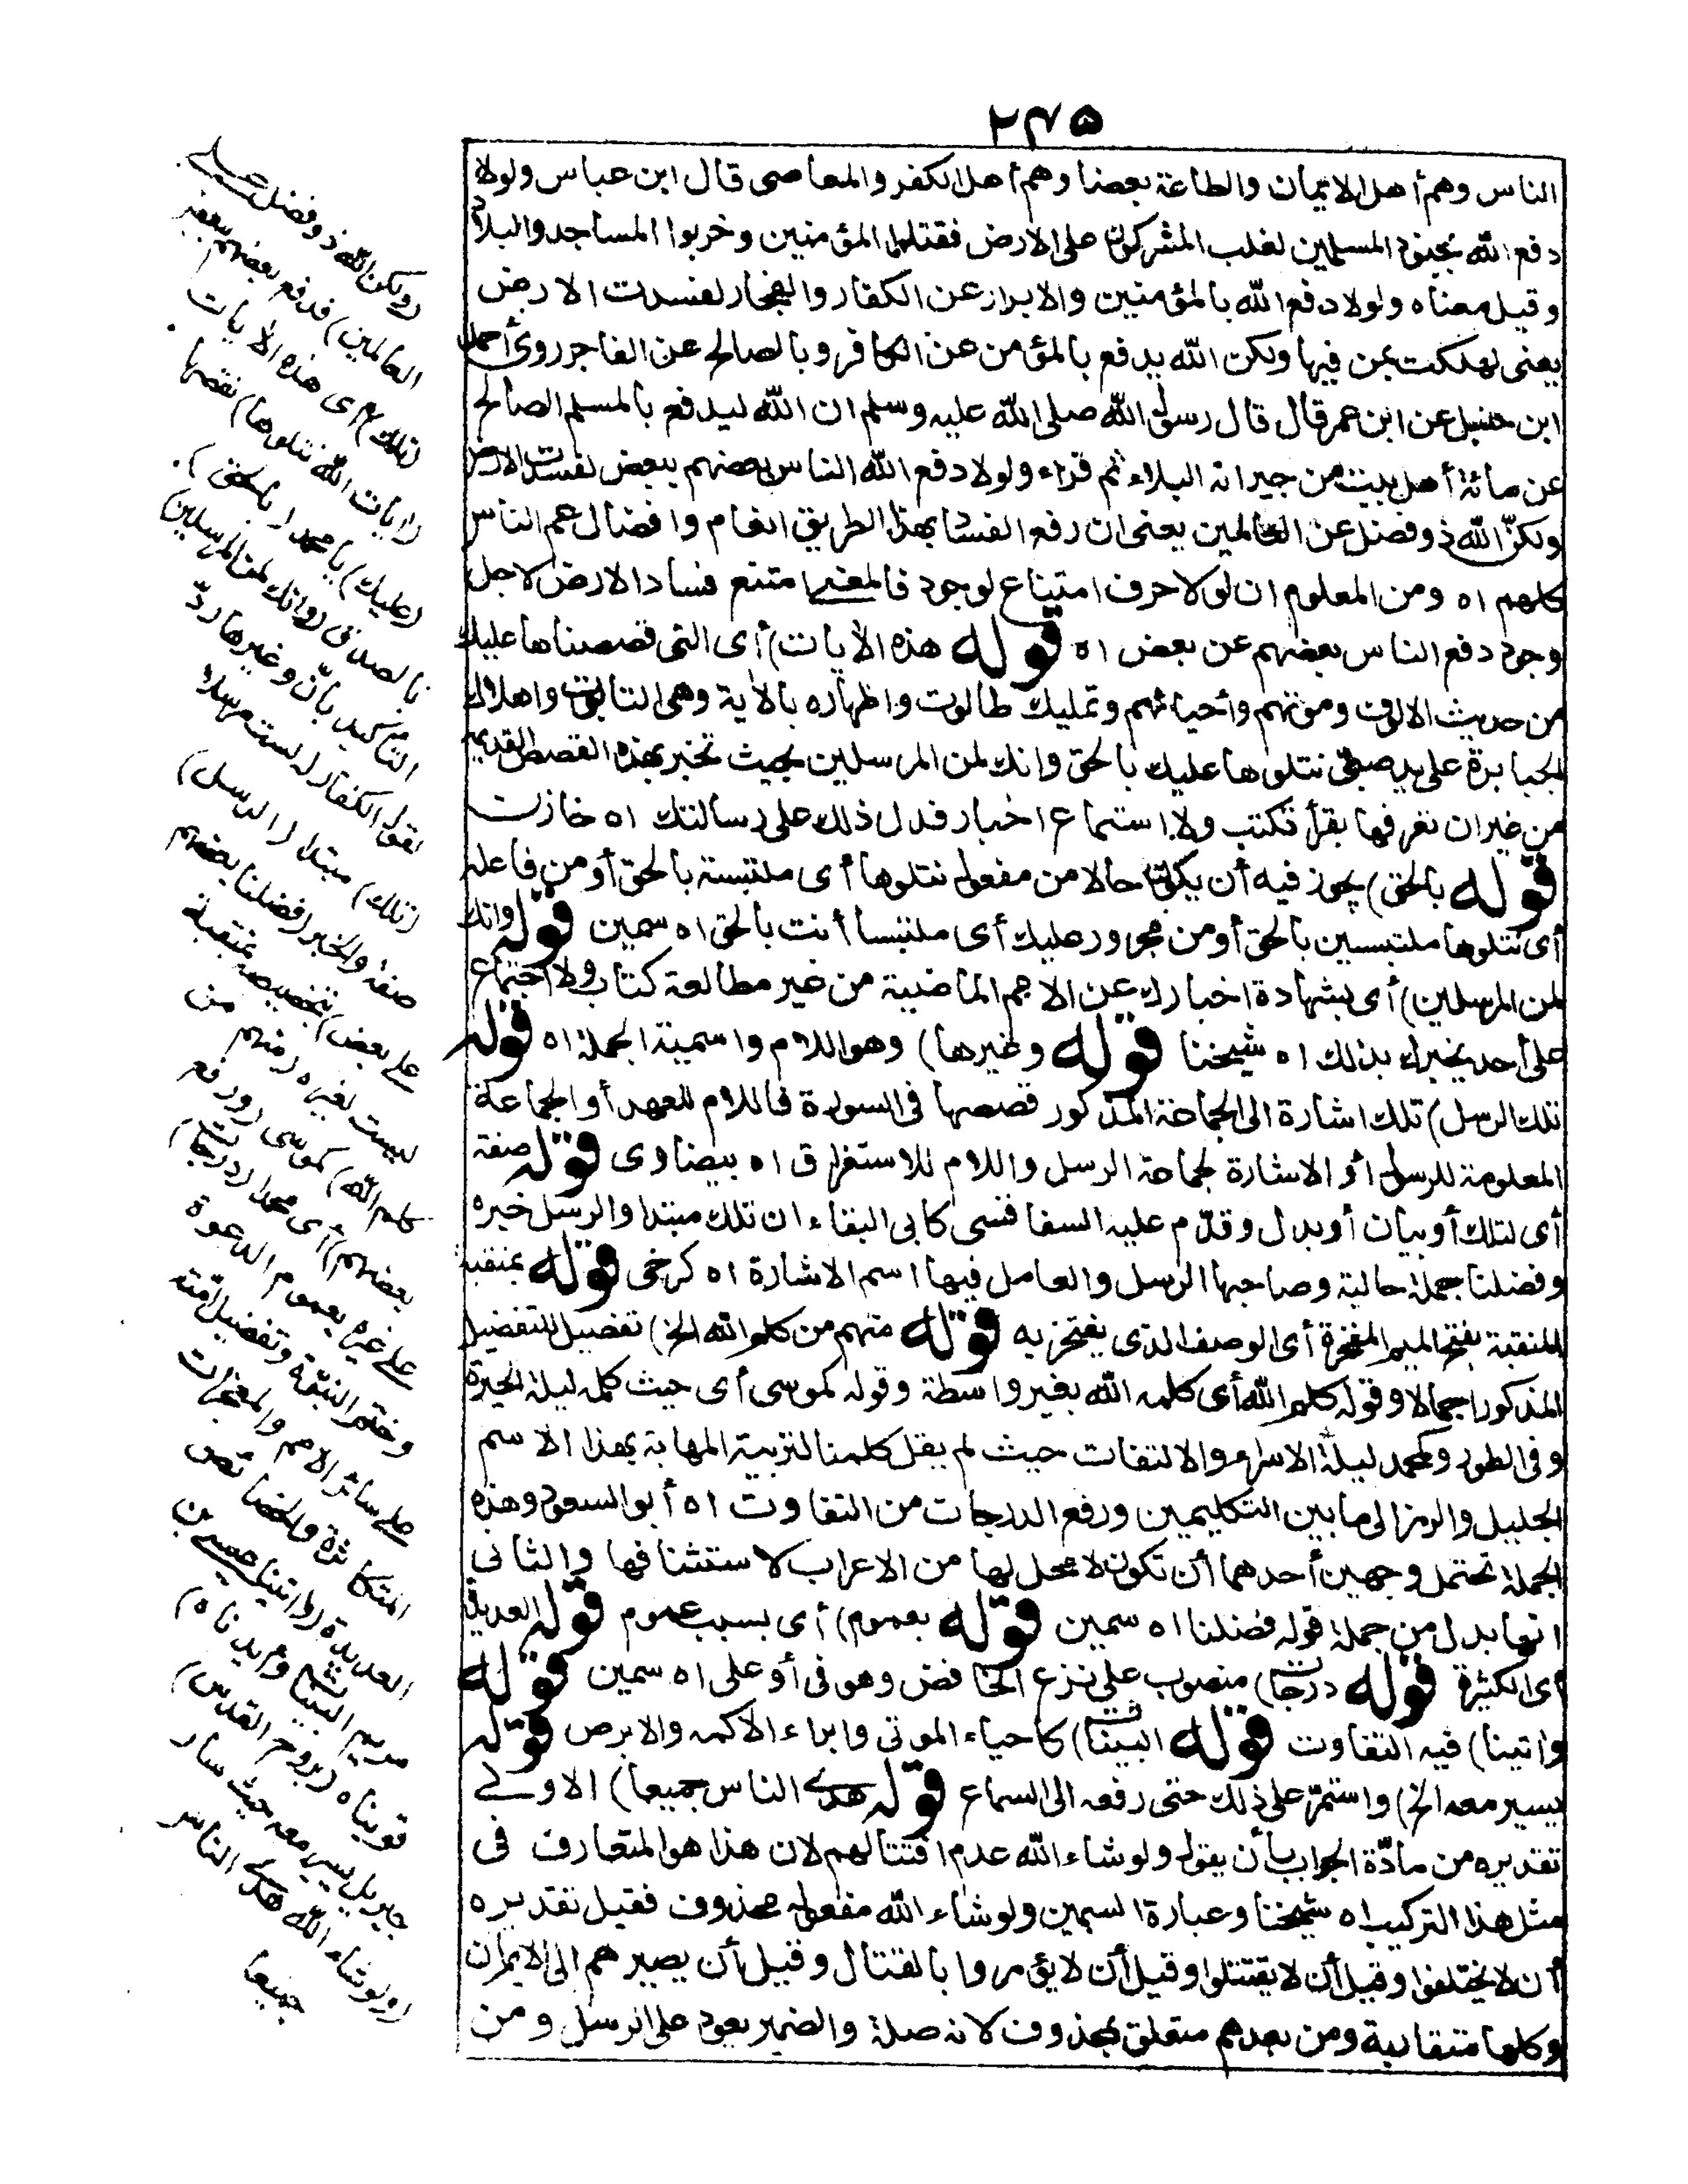 ٢٤٥
الناس وهم أهل الايمان والطاعة بعضا وهم أهل الكفر والمعاصى قال ابن عباس ولولا
دفع الله بجنود المسلمين لغلب المشركون على الارض فقتلوا المؤمنين وخربوا المساجد والبلاد
وقيل معناه ولولا دفع الله بالمؤمنين والابرار عن الكفار والفجار لفسدت الارض
يعنى لهلكت بمن فيها ولكن الله يدفع بالمؤمن عن الكافر وبالصالح عن الفاجر روى أحمد
ابن حنبل عن ابن عمر قال قال رسول الله صلى الله عليه وسلم ان الله ليدفع بالمسلم الصالح
عن مائة أهل بيت من جيرانه البلاء ثم قراء ولولا دفع الله الناس بعضهم ببعض لفسدت الارض
ولكنّ الله ذو فضل عن العالمين يعنى ان رفع الفساد بهذا الطريق انعام وافضال عم الناس
كلهم اه ومن المعلوم ان لولا حرف امتناع لوجود فالمعنى امتنع فساد الارض لاجل
وجود دفع الناس بعضهم عن بعض اه قوله هذه الآيات) أى التى قصصناها عليك
من حديث الالوف وموتهم وأحيائهم وتمليك طالوت واظهاره بالآية وهى التابوت واهلاك
الجبابرة على يد صبى نتلوها عليك بالحق وانك لمن المرسلين بحيث تخبر بهذه القصص القديمة
من غير ان تعرفها بقرأة كتب ولا استماع اخبار فدل ذلك على رسالتك اه خازن
قوله بالحق) يجوز فيه أن يكون حالا من مفعول نتلوها أى ملتبسة بالحق أو من فاعله
أى نتلوها ملتبسين بالحق أو من مجرور عليك أى ملتبسا أنت بالحق اه سمين قوله وانك
لمن المرسلين) أى بشهادة اخبارك عن الامم الماضية من غير مطالعة كتاب ولا اجتماع
على أحد يخبرك بذلك اه شيخنا قوله وغيرها) وهو اللام واسمية الجملة اه قوله
تلك الرسل) تلك اشارة الى الجماعة المذكور قصصها فى السورة فاللام للعهد أو الجماعة
المعلومة للرسول أو الاشارة لجماعة الرسل واللام للاستغراق اه بيضاوى قوله صفة
أى لتلك أو بيان أو بدل وقدّم عليه السفاقسى كابى البقاء ان تلك مبتدا والرسل خبره
وفضلنا جملة حالية وصاحبها الرسل والعامل فيها اسم الاشارة اه كرخى قوله بمنقبة
المنقبة بفتح الميم المفخرة أى الوصف الذى يفتخر به قوله منهم من كلم الله الخ) تفصيل للتفضيل
المذكور اجمالا وقوله كلم الله أى كلمه الله بغير واسطة وقوله كموسى أى حيث كلمه ليلة الحيرة
وفى الطور ومحمد ليلة الاسراء والالتفات حيث لم يقل كلمنا لتربية المهابة بهذا الاسم
الجليل والرمز الى ما بين التكليمين ورفع الدرجات من التفاوت اه أبو السعود وهذه
الجملة تحتمل وجهين أحدهما أن تكون لا محل لها من الاعراب لاستئنافها والثانى
انها بدل من جملة قوله فضلنا اه سمين قوله بعموم) أى بسبب عموم قوله العديدة
أى الكثيرة قوله درجات) منصوب على نزع الخافض وهو فى أو على اه سمين قوله
واتينا) فيه التفاوت قوله البينات) كاحياء الموتى وابراء الاكمه والابرص قوله
يسير معه الخ) واستمرّ على ذلك حتى رفعه الى السماع قوله هدى الناس جميعا) الاولى
تقديره من مادّة الجواب بأن يقول ولو شاء الله عدم اقتتالهم لان هذا هو المتعارف فى
مثل هذا التركيب اه شيخنا وعبارة السمين ولو شاء الله مفعوله محذوف فقيل تقديره
أن لا يختلفوا وقيل أن لا يقتتلوا وقيل أن لا يؤمروا بالقتال وقيل أن يصيرهم الى الايمان
وكلها متقاربة ومن بعدهم متعلق بمحذوف لانه صلة والضمير يعود على الرسل ومن
(ولكن الله ذو فضل على
العالمين) فدفع بعضهم ببعض
(تلك) أى هذه الآيات
(آيات الله نتلوها) نقصها
(عليك) يا محمد (بالحق)
بالصدق (وانك لمن المرسلين)
التأكيد بانّ وغيرها ردّ
لقول الكفار له لست مرسلا
(تلك) مبتدا (الرسل)
صفة والخبر (فضلنا بعضهم
على بعض) بتخصيصه بمنقبة
ليست لغيره (منهم من
كلم الله) كموسى (ورفع
بعضهم) أى محمدا (درجات)
على غيره بعموم الدعوة
وختم النبوّة وتفضيل أمّته
على سائر الامم والمعجزات
المتكاثرة والخصائص
العديدة (واتينا عيسى بن
مريم البينات وأيدناه)
قويناه (بروح القدس)
جبريل يسير معه حيث سار
(ولو شاء الله) هدى الناس
جميعا